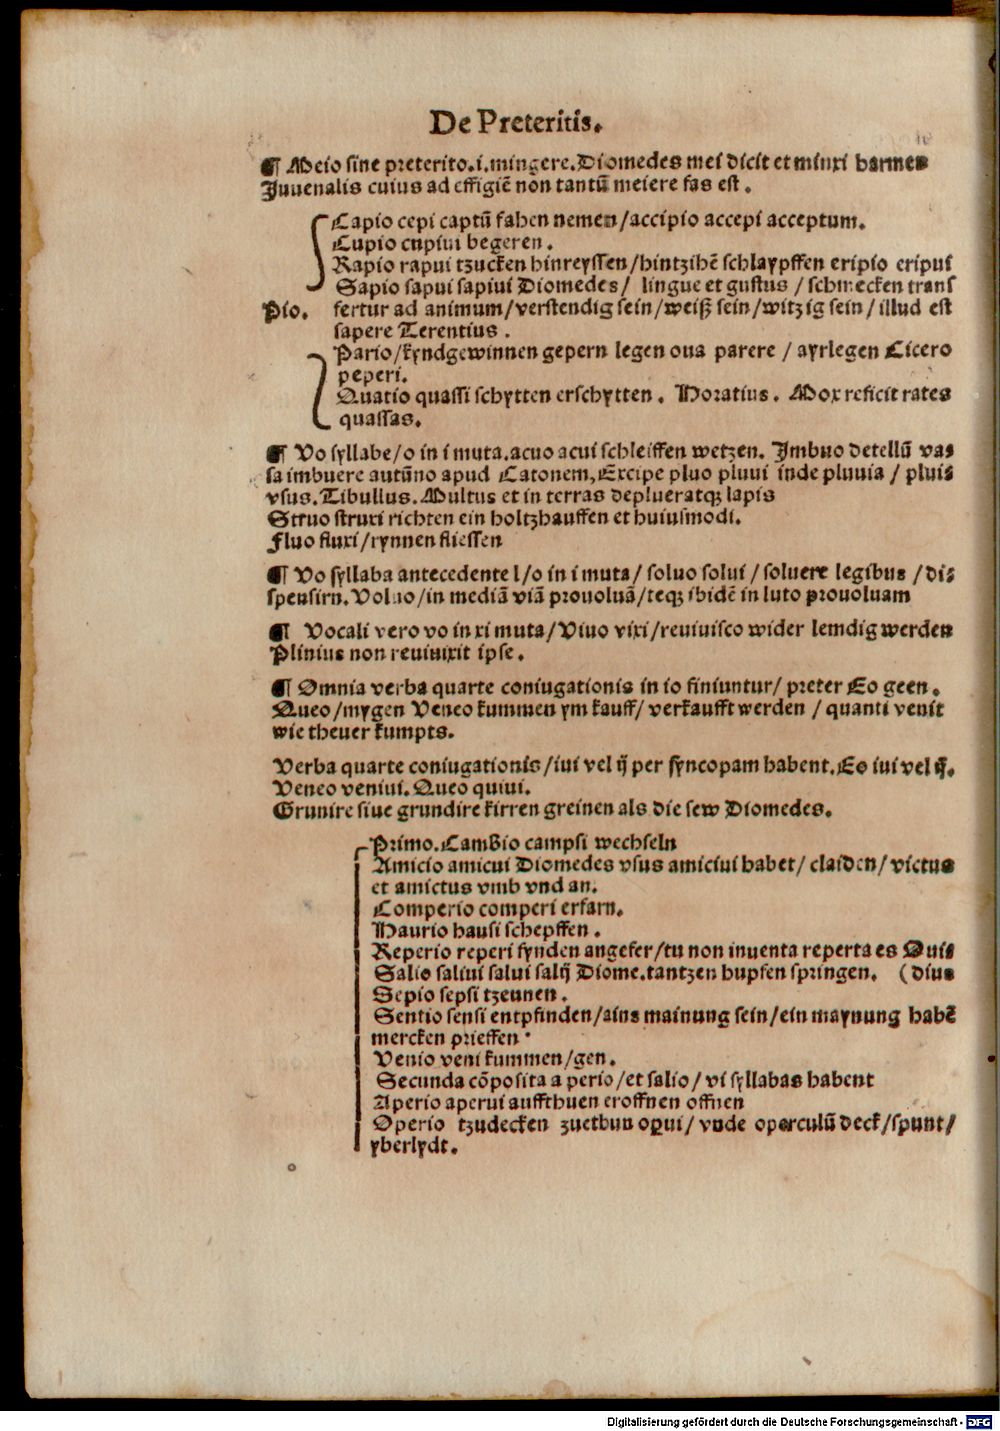 De Preteritis.
¶ Meio sine preterito.i.mingere.Diomedes mei dicit et minxi harmen
Juuenalis cuius ad effigiē non tantū meiere fas est.
Capio cepi captū fahen nemen/accipio accepi acceptum.
Cupio cupiui begeren.
Rapio rapui tzucken hinreyssen/hintzihē schlaypffen eripio eripui
Sapio sapui sapiui Diomedes/ lingue et gustus/schmecken trans
Pio. fertur ad animum/verstendig sein/weiß sein/witzig sein/illud est
sapere Terentius.
Pario/kyndgewinnen gepern legen oua parere/ayrlegen Cicero
peperi.
Quatio quassi schytten erschytten. Horatius. Mox reficit rates
quassas.
¶ Vo syllabe/o in i muta.acuo acui schleiffen wetzen. Imbuo detellū vas
sa imbuere autūno apud Catonem,Excipe pluo pluui inde pluuia/pluis
vsus.Tibullus.Multus et in terras deplueratqȝ lapis
Struo struxi richten ein holtzhauffen et huiusmodi.
Fluo fluxi/rynnen fliessen
¶ Vo syllaba antecedente l/o in i muta/soluo solui/soluere legibus/dis
spensirn.Voluo/in mediā viā prouoluā/teqȝ ibidē in luto prouoluam
¶ Vocali vero vo in xi muta/Viuo vixi/reuiuisco wider lemdig werden
Plinius non reuiuixit ipse.
¶ Omnia verba quarte coniugationis in io finiuntur/preter Eo geen.
Queo/mygen Veneo kummen ym kauff/verkaufft werden/quanti venit
wie theuer kumpts.
Verba quarte coniugationis/iui vel ij per syncopam habent.Eo iui vel ij.
Veneo veniui.Queo quiui.
Grunire siue grundire kirren greinen als die sew Diomedes.
Primo.Cambio campsi wechseln
Amicio amicui Diomedes vsus amiciui habet/claiden/victus
et amictus vmb vnd an.
Comperio comperi erfarn.
Haurio hausi schepffen.
Reperio reperi fynden angefer/tu non inuenta reperta es Oui=
Salio saliui salui salij Diome.tantzen hupfen springen. (dius
Sepio sepsi tzeunen.
Sentio sensi entpfinden/ains mainung sein/ein maynung habē
mercken prieffen.
Venio veni kummen/gen.
Secunda cōposita a perio/et salio/vi syllabas habent
Aperio aperui auffthuen eroffnen offnen
Operio tzudecken zuethun opui/vnde operculū deck/spunt/
yberlydt.
Digitalisierung gefördert durch die Deutsche Forschungsgemeinschaft - DFG